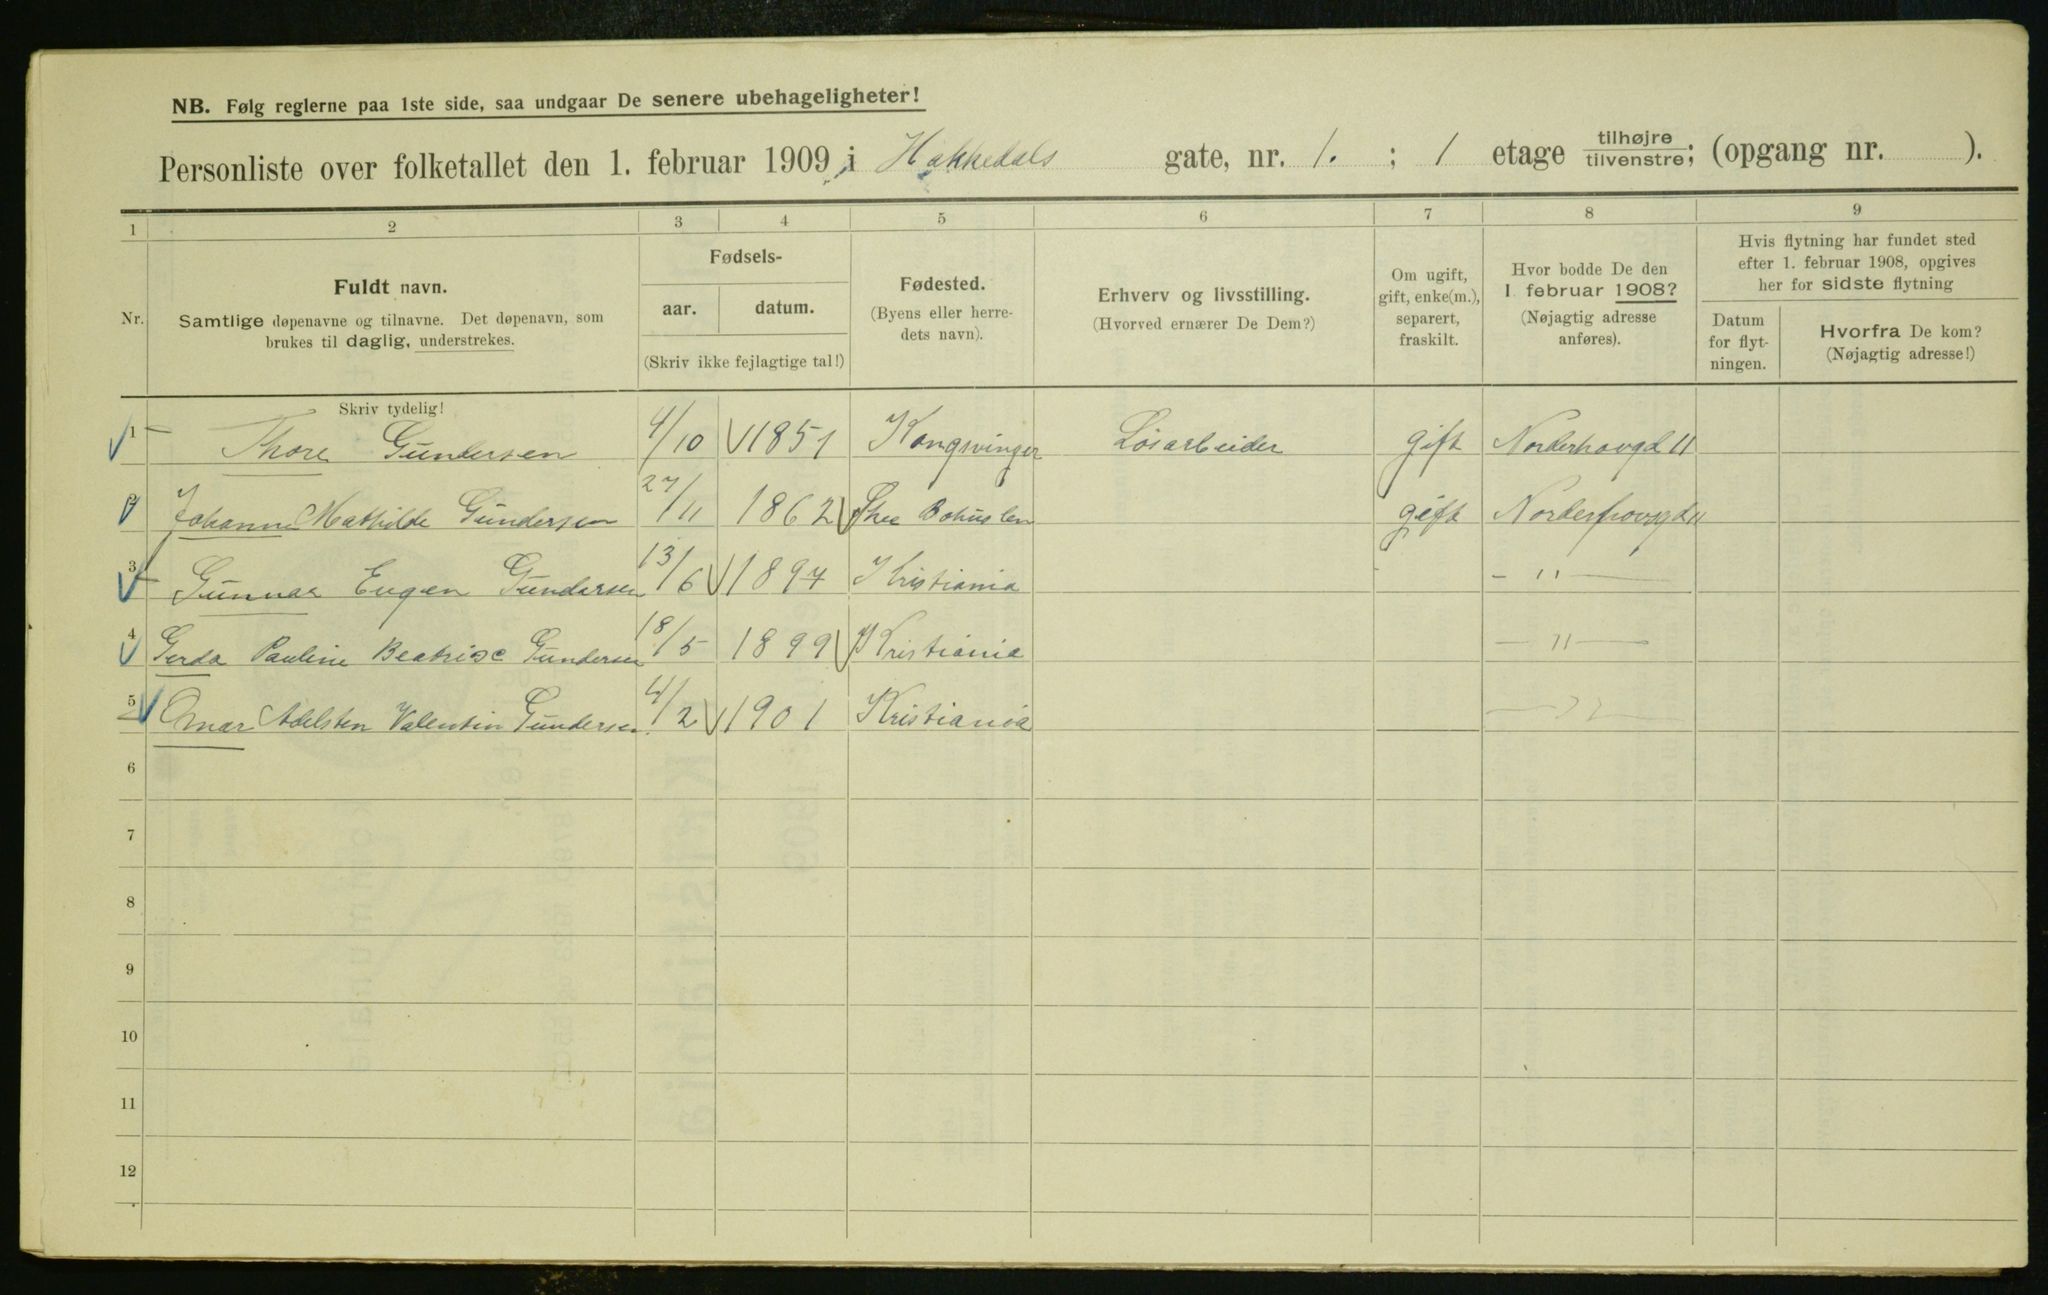 NB. Følg reglerne paa 1ste side, saa undgaar De senere ubehageligheter!
Personliste over folketallet den 1. februar 1909, i Hakkedals gate, nr. 1. ; 1 etage tilhøjre tilvenstre; (opgang nr. ).
1 2 3 4 5 6 7 8 9
Nr.
Fuldt navn.
Samtlige døpenavne og tilnavne. Det døpenavn, som
brukes til daglig, understrekes.
Fødsels-
aar. datum.
(Skriv ikke fejlagtige tal!)
Fødested.
(Byens eller herre-
dets navn).
Erhverv og livsstilling.
(Hvorved ernærer De Dem?)
Om ugift,
gift, enke(m.),
separert,
fraskilt.
Hvor bodde De den
1 februar 1908?
(Nøjagtig adresse
anføres).
Hvis flytning har fundet sted
efter 1. februar 1908, opgives
her for sidste flytning
Datum
for flyt-
ningen.
Hvorfra De kom?
(Nøjagtig adresse!)
Skriv tydelig!
1 Thore Gundersen 4/10 1851 Kongsvinger Løsarbeider gift Norderhovgd 11
2 Johanne Mathilde Gundersen 27/11 1862 Bohuslen gift Norderhovgd 11
3 Gunnar Eugen Gundersen 13/6 1897 Kristiania - " -
4 Gerda Pauline Beatrise Gundersen 18/5 1899 Kristiania - " -
5 Omar Adelsten Valentin Gundersen 4/2 1901 Kristiania - " -
6
7
8
9
10
11
12